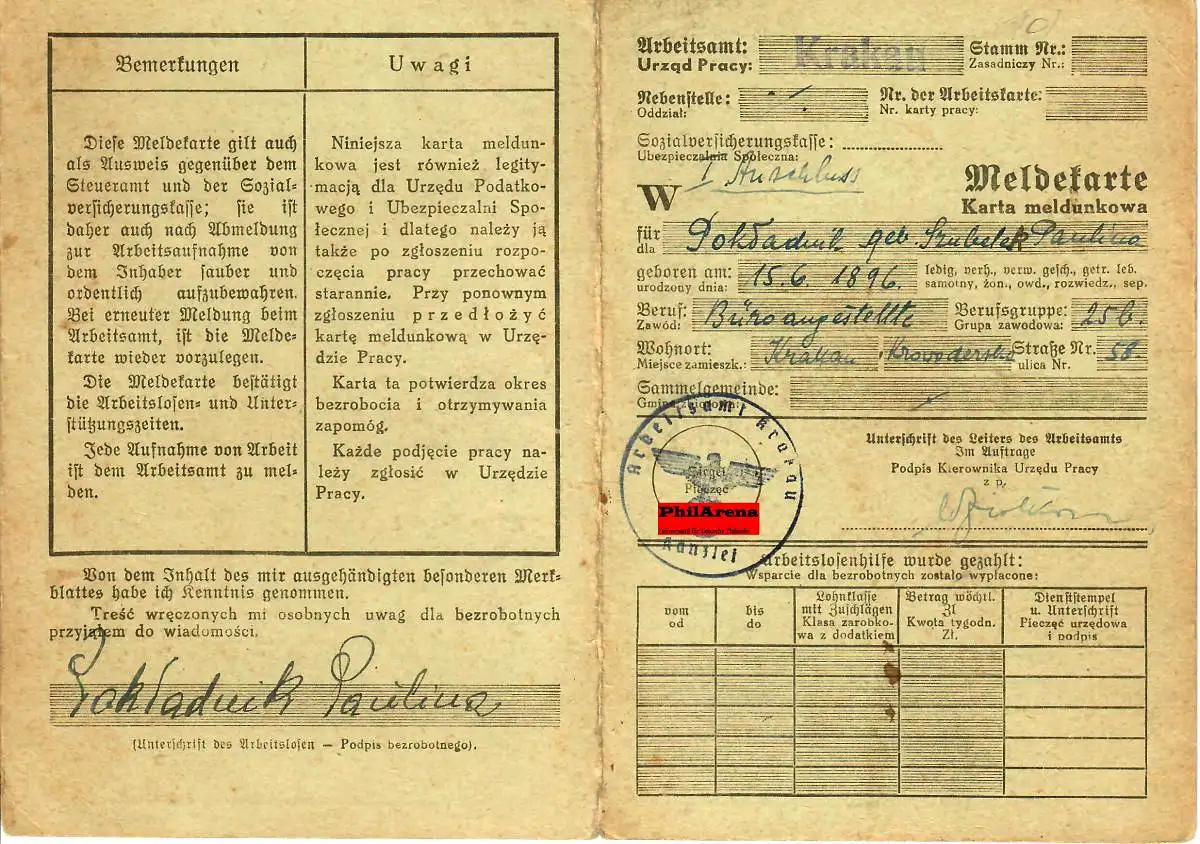 Bemerkungen
Uwagi
Diese Meldekarte gilt auch
als Ausweis gegenüber dem
Steueramt und der Sozial-
versicherungskasse; sie ist
daher auch nach Abmeldung
zur Arbeitsaufnahme von
dem Inhaber sauber und
ordentlich aufzubewahren.
Bei erneuter Meldung beim
Arbeitsamt, ist die Melde-
karte wieder vorzulegen.
Die Meldekarte bestätigt
die Arbeitslosen- und Unter-
stützungszeiten.
Jede Aufnahme von Arbeit
ist dem Arbeitsamt zu mel-
den.
Niniejsza karta meldun-
kowa jest również legity-
macją dla Urzędu Podatko-
wego i Ubezpieczalni Spo-
łecznej i dlatego należy ją
także po zgłoszeniu rozpo-
częcia pracy przechować
starannie. Przy ponownym
zgłoszeniu przedłożyć
kartę meldunkową w Urzę-
dzie Pracy.
Karta ta potwierdza okres
bezrobocia i otrzymywania
zapomóg.
Każde podjęcie pracy na-
leży zgłosić w Urzędzie
Pracy.
Von dem Inhalt des mir ausgehändigten besonderen Merk-
blattes habe ich Kenntnis genommen.
Treść wręczonych mi osobnych uwag dla bezrobotnych
przyjąłem do wiadomości.
Pokładnik Paulina
(Unterschrift des Arbeitslosen — Podpis bezrobotnego).
Arbeitsamt: Krakau Stamm Nr.:
Urząd Pracy: Zasadniczy Nr.:
Nebenstelle: Nr. der Arbeitskarte:
Oddział: Nr. karty pracy:
Sozialversicherungskasse:
Ubezpieczalnia Społeczna:
I Anschluss
W
Meldekarte
Karta meldunkowa
für Pokładnik geb Paulina
dla
geboren am: 15.6 1896. ledig, verh., verw. gesch., getr. leb.
urodzony dnia: samotny, żon., owd., rozwiedz., sep.
Beruf: Büroangestellte Berufsgruppe: 25b.
Zawód: Grupa zawodowa:
Wohnort: Krakau, Krowoderska Straße Nr. 58.
Miejsce zamieszk.: ulica Nr.
Sammelgemeinde:
Gmina zbiorowa:
Arbeitsamt Krakau
Siegel
Pieczęć
PhilArena
Kanzlei
Unterschrift des Leiters des Arbeitsamts
Im Auftrage
Podpis Kierownika Urzędu Pracy
z p.
Arbeitslosenhilfe wurde gezahlt:
Wsparcie dla bezrobotnych zostało wypłacone:
vom
od
bis
do
Lohnklasse
mit Zuschlägen
Klasa zarobko-
wa z dodatkiem
Betrag wöchtl.
Zl
Kwota tygodn.
Zł.
Dienststempel
u. Unterschrift
Pieczęć urzędowa
i podpis